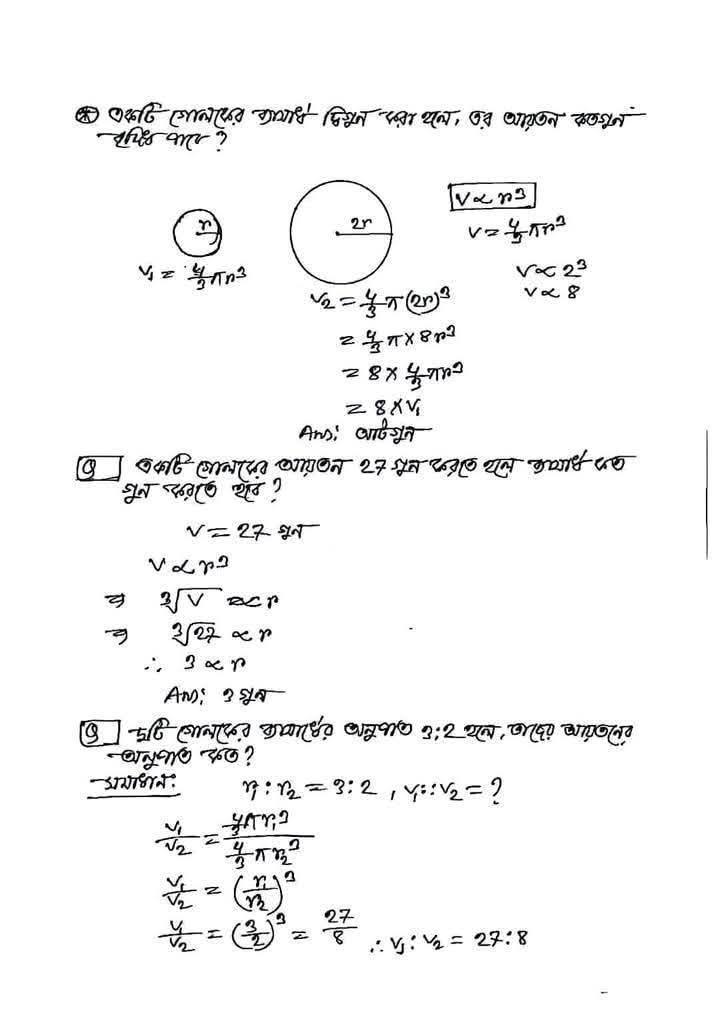 ⊛ একটি গোলকের ব্যাসার্ধ দ্বিগুন করা হলে, তর আয়তন কতগুন
বৃদ্ধি পাবে?
r
2r
V ∝ r³
V = 4/3 πr³
V₁ = 4/3 πr³
V ∝ 2³
V₂ = 4/3 π(2r)³
V ∝ 8
= 4/3 π × 8r³
= 8 × 4/3 πr³
= 8 × V₁
Ans: আটগুন
Q একটি গোলকের আয়তন 27 গুন করতে হলে ব্যাসার্ধ কত
গুন করতে হবে?
V = 27 গুন
V ∝ r³
⇒ ³√V ∝ r
⇒ ³√27 ∝ r
∴ 3 ∝ r
Ans: 3 গুন
Q দুটি গোলকের ব্যাসার্ধের অনুপাত 3:2 হলে, তাদের আয়তনের
অনুপাত কত?
সমাধান: r₁ : r₂ = 3 : 2 , V₁ : V₂ = ?
V₁/V₂ = (4/3 πr₁³)/(4/3 πr₂³)
V₁/V₂ = (r₁/r₂)³
V₁/V₂ = (3/2)³ = 27/8 ∴ V₁ : V₂ = 27 : 8